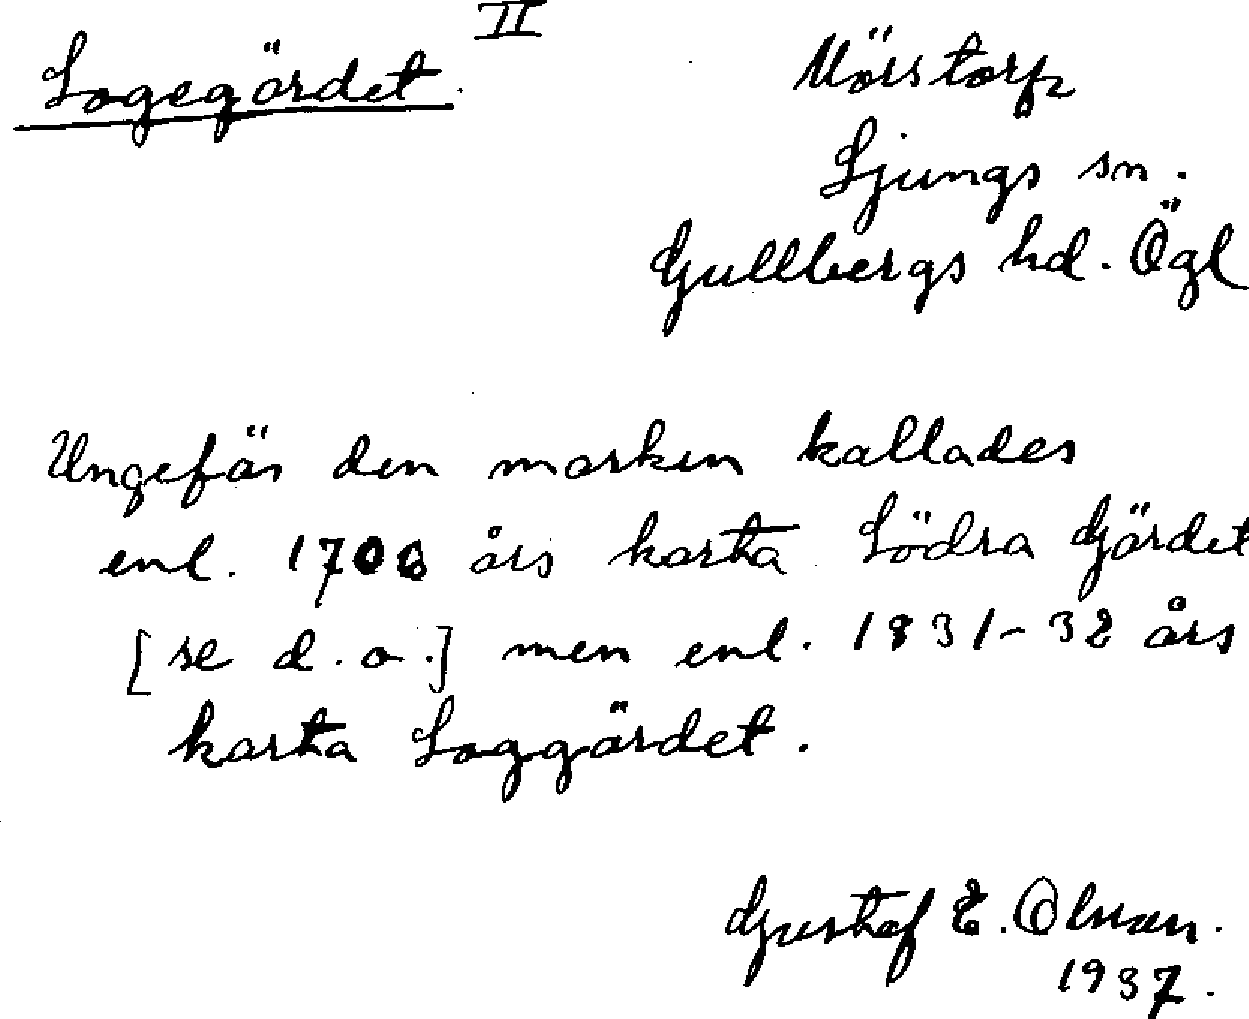 II
Logegärdet.
Mörstorp
Ljungs sn.
Gullbergs hd. Ögl
Ungefär den marken kallades
enl. 1706 års karta Södra Gärdet
[se d.o.] men enl. 1831-32 års
karta Loggärdet.
Gustaf E. Olman.
1937.